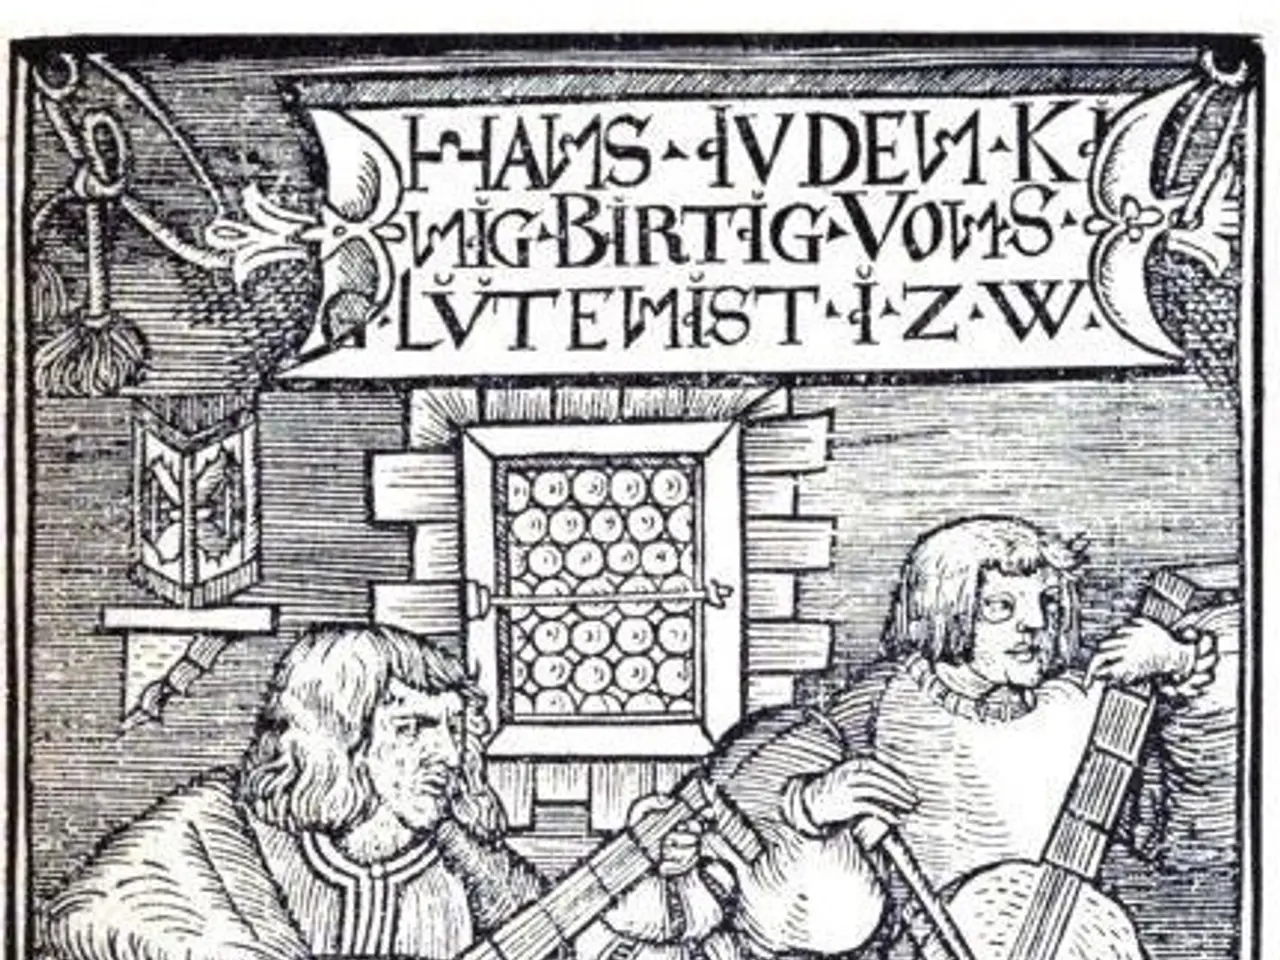 HANS · IVDEN · KI
NIG · BIRTIG · VONS ·
· LV̆TENIST · I · Z · W ·